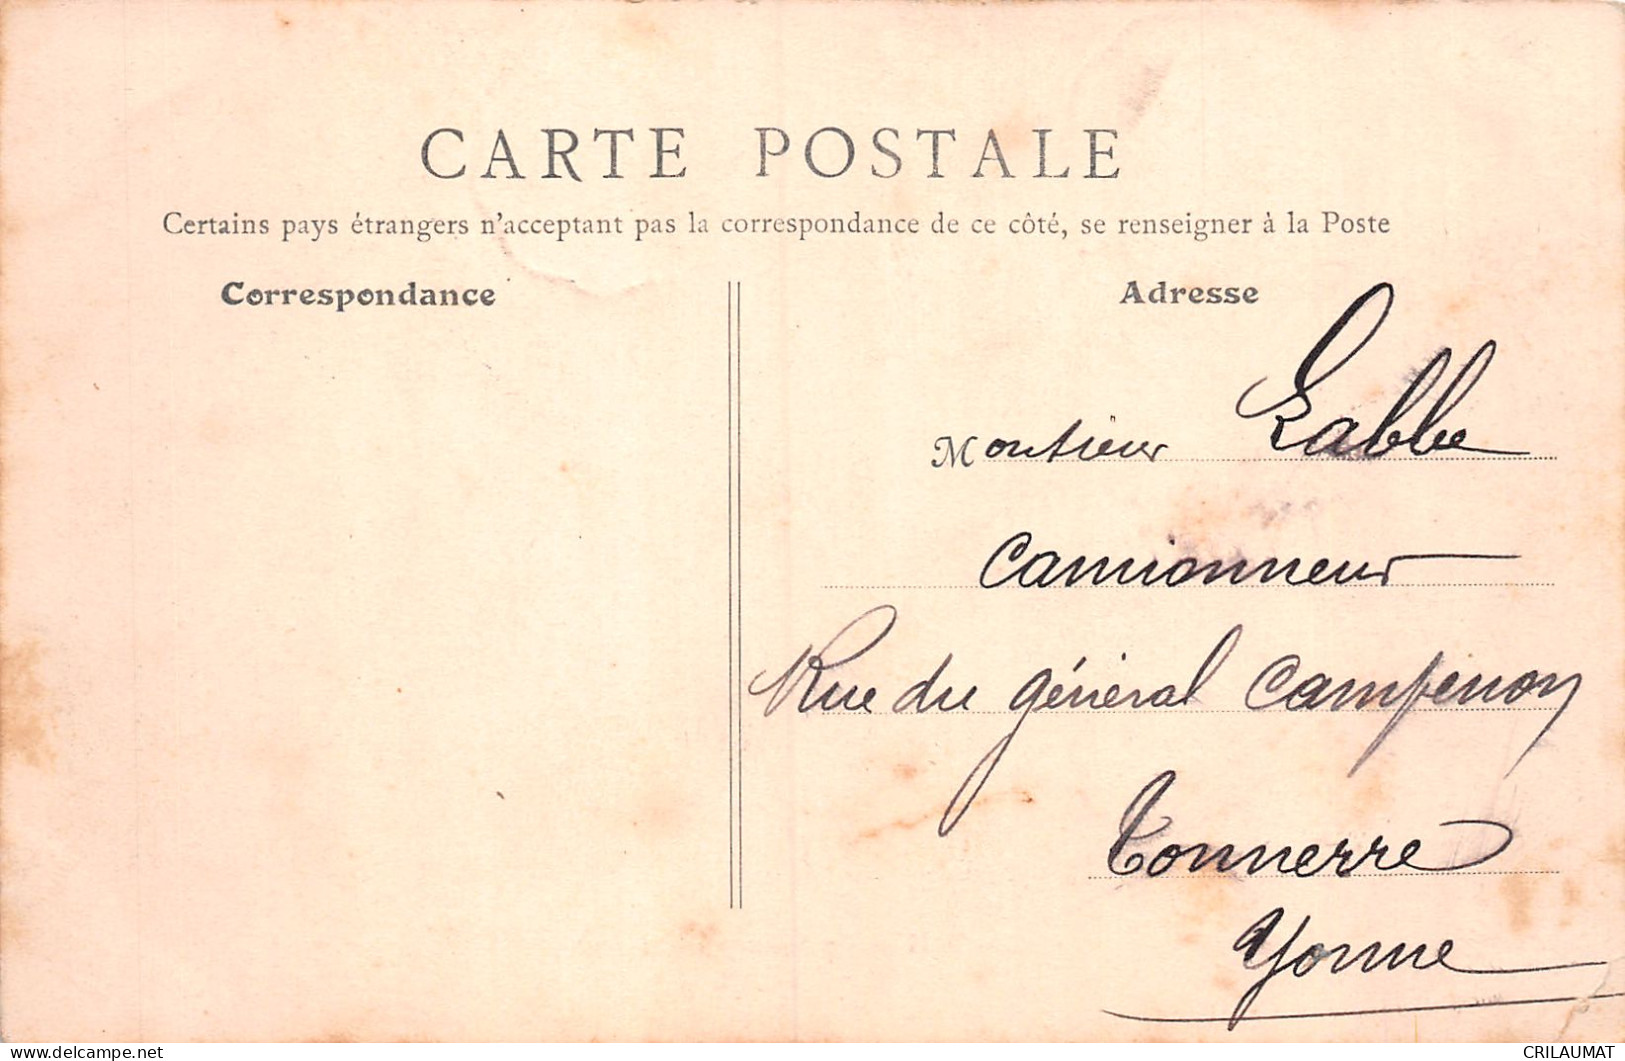 CARTE POSTALE
Certains pays étrangers n'acceptant pas la correspondance de ce côté, se renseigner à la Poste
Correspondance
Adresse
Monsieur Labbe
Camionneur
Rue du général Campenon
Tonnerre
Yonne
delcampe.net
CRILAUMAT